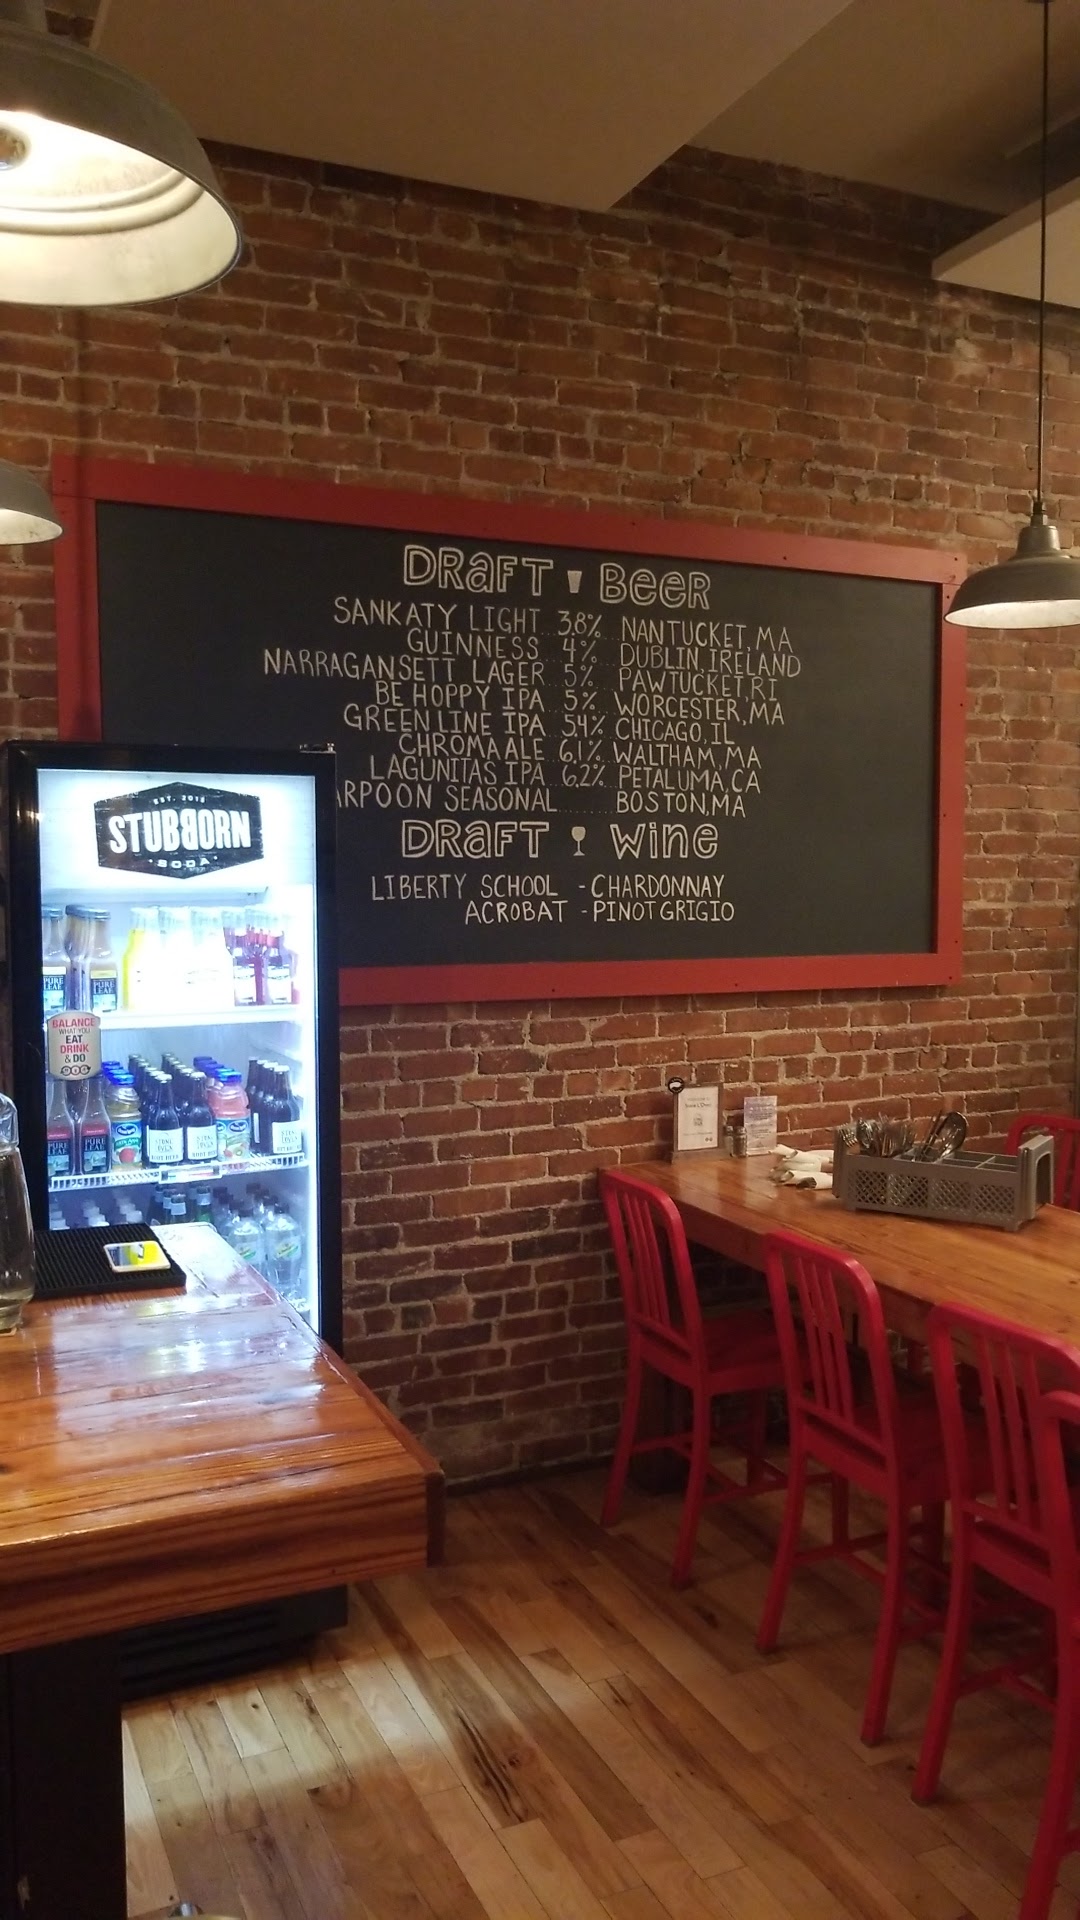 DRAFT BEER
SANKATY LIGHT 3.8% NANTUCKET, MA
GUINNESS 4% DUBLIN, IRELAND
NARRAGANSETT LAGER 5% PAWTUCKET, RI
BE HOPPY IPA 5% WORCESTER, MA
GREEN LINE IPA 5.4% CHICAGO, IL
CHROMA ALE 6.1% WALTHAM, MA
LAGUNITAS IPA 6.2% PETALUMA, CA
ARPOON SEASONAL BOSTON, MA
DRAFT WINE
LIBERTY SCHOOL - CHARDONNAY
ACROBAT - PINOT GRIGIO
STUBBORN
SODA
PURE
LEAF
PURE
LEAF
BALANCE
WHAT YOU
EAT
DRINK
& DO
PURE
PURE